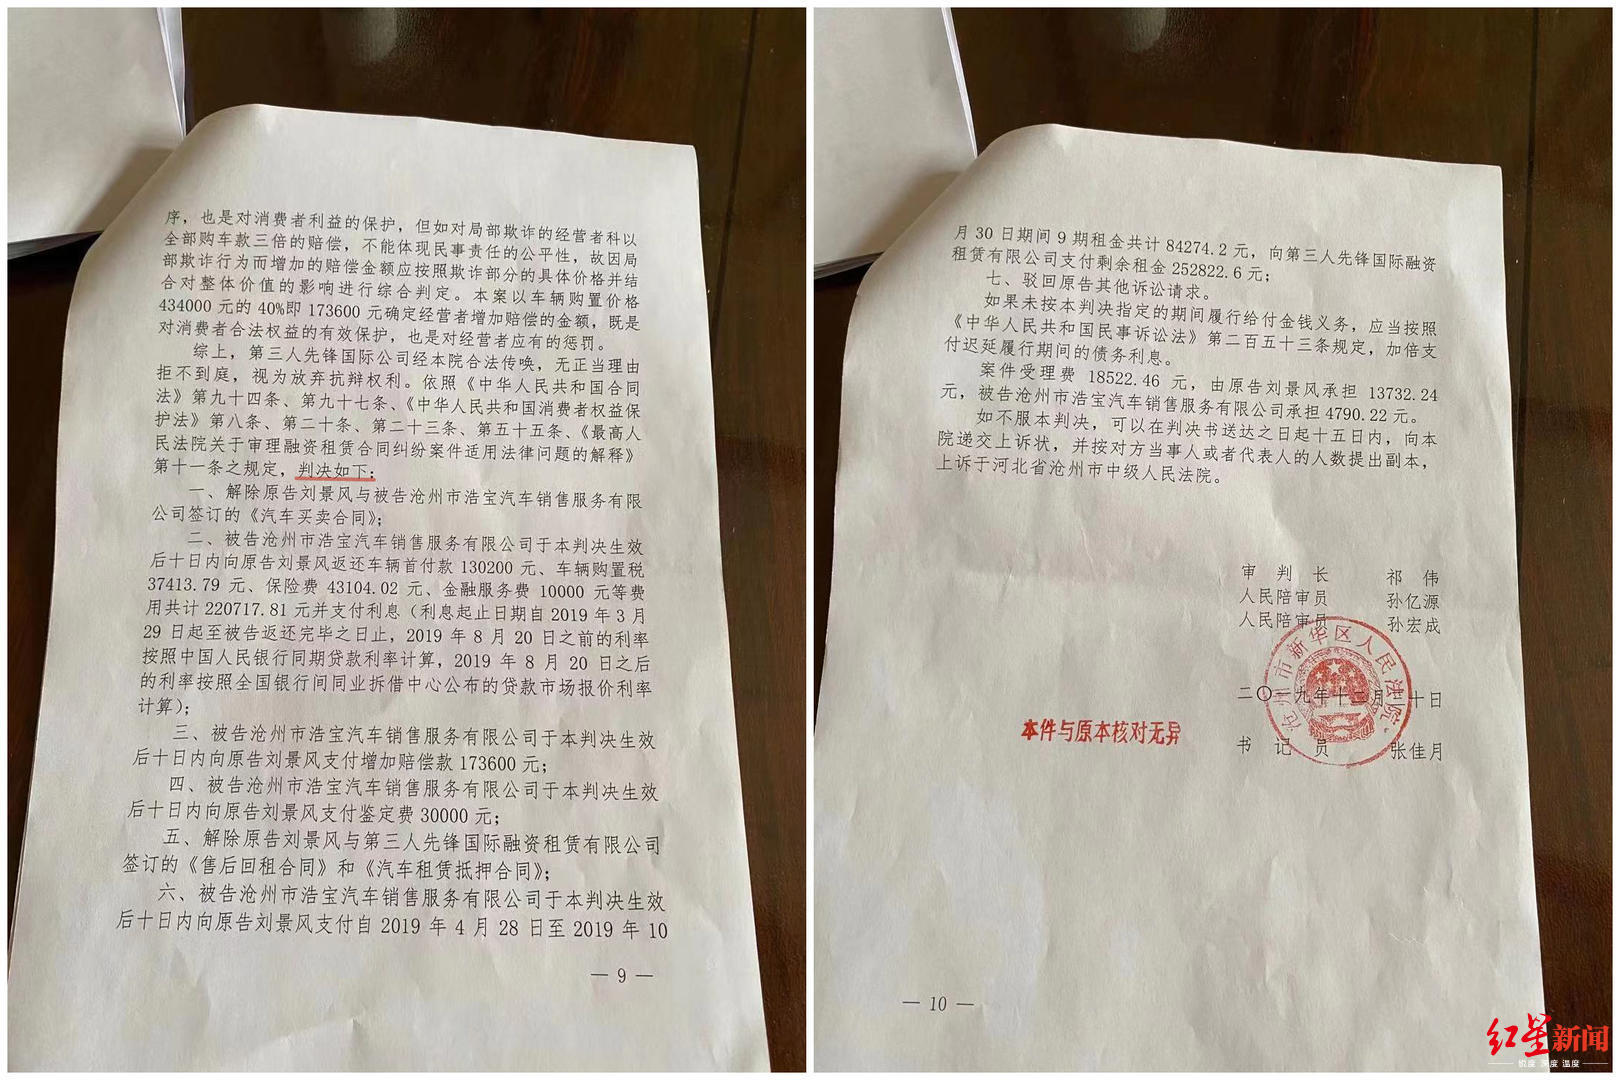 序，也是对消费者利益的保护，但如对局部欺诈的经营者科以
全部购车款三倍的赔偿，不能体现民事责任的公平性，故因局
部欺诈行为而增加的赔偿金额应按照欺诈部分的具体价格并结
合对整体价值的影响进行综合判定。本案以车辆购置价格
434000 元的 40%即 173600 元确定经营者增加赔偿的金额，既是
对消费者合法权益的有效保护，也是对经营者应有的惩罚。
综上，第三人先锋国际公司经本院合法传唤，无正当理由
拒不到庭，视为放弃抗辩权利。依照《中华人民共和国合同
法》第九十四条、第九十七条、《中华人民共和国消费者权益保
护法》第八条、第二十条、第二十三条、第五十五条、《最高人
民法院关于审理融资租赁合同纠纷案件适用法律问题的解释》
第十一条之规定，判决如下：
一、解除原告刘景风与被告沧州市浩宝汽车销售服务有限
公司签订的《汽车买卖合同》；
二、被告沧州市浩宝汽车销售服务有限公司于本判决生效
后十日内向原告刘景风返还车辆首付款 130200 元、车辆购置税
37413.79 元、保险费 43104.02 元、金融服务费 10000 元等费
用共计 220717.81 元并支付利息（利息起止日期自 2019 年 3 月
29 日起至被告返还完毕之日止，2019 年 8 月 20 日之前的利率
按照中国人民银行同期贷款利率计算，2019 年 8 月 20 日之后
的利率按照全国银行间同业拆借中心公布的贷款市场报价利率
计算）；
三、被告沧州市浩宝汽车销售服务有限公司于本判决生效
后十日内向原告刘景风支付增加赔偿款 173600 元；
四、被告沧州市浩宝汽车销售服务有限公司于本判决生效
后十日内向原告刘景风支付鉴定费 30000 元；
五、解除原告刘景风与第三人先锋国际融资租赁有限公司
签订的《售后回租合同》和《汽车租赁抵押合同》；
六、被告沧州市浩宝汽车销售服务有限公司于本判决生效
后十日内向原告刘景风支付自 2019 年 4 月 28 日至 2019 年 10
— 9 —
月 30 日期间 9 期租金共计 84274.2 元，向第三人先锋国际融资
租赁有限公司支付剩余租金 252822.6 元；
七、驳回原告其他诉讼请求。
如果未按本判决指定的期间履行给付金钱义务，应当按照
《中华人民共和国民事诉讼法》第二百五十三条规定，加倍支
付迟延履行期间的债务利息。
案件受理费 18522.46 元，由原告刘景风承担 13732.24
元，被告沧州市浩宝汽车销售服务有限公司承担 4790.22 元。
如不服本判决，可以在判决书送达之日起十五日内，向本
院递交上诉状，并按对方当事人或者代表人的人数提出副本，
上诉于河北省沧州市中级人民法院。
审 判 长 祁 伟
人民陪审员 孙亿源
人民陪审员 孙宏成
沧州市新华区人民法院
二〇一九年十二月三十日
本件与原本核对无异
书 记 员 张佳月
— 10 —
红星新闻
锐度 深度 温度